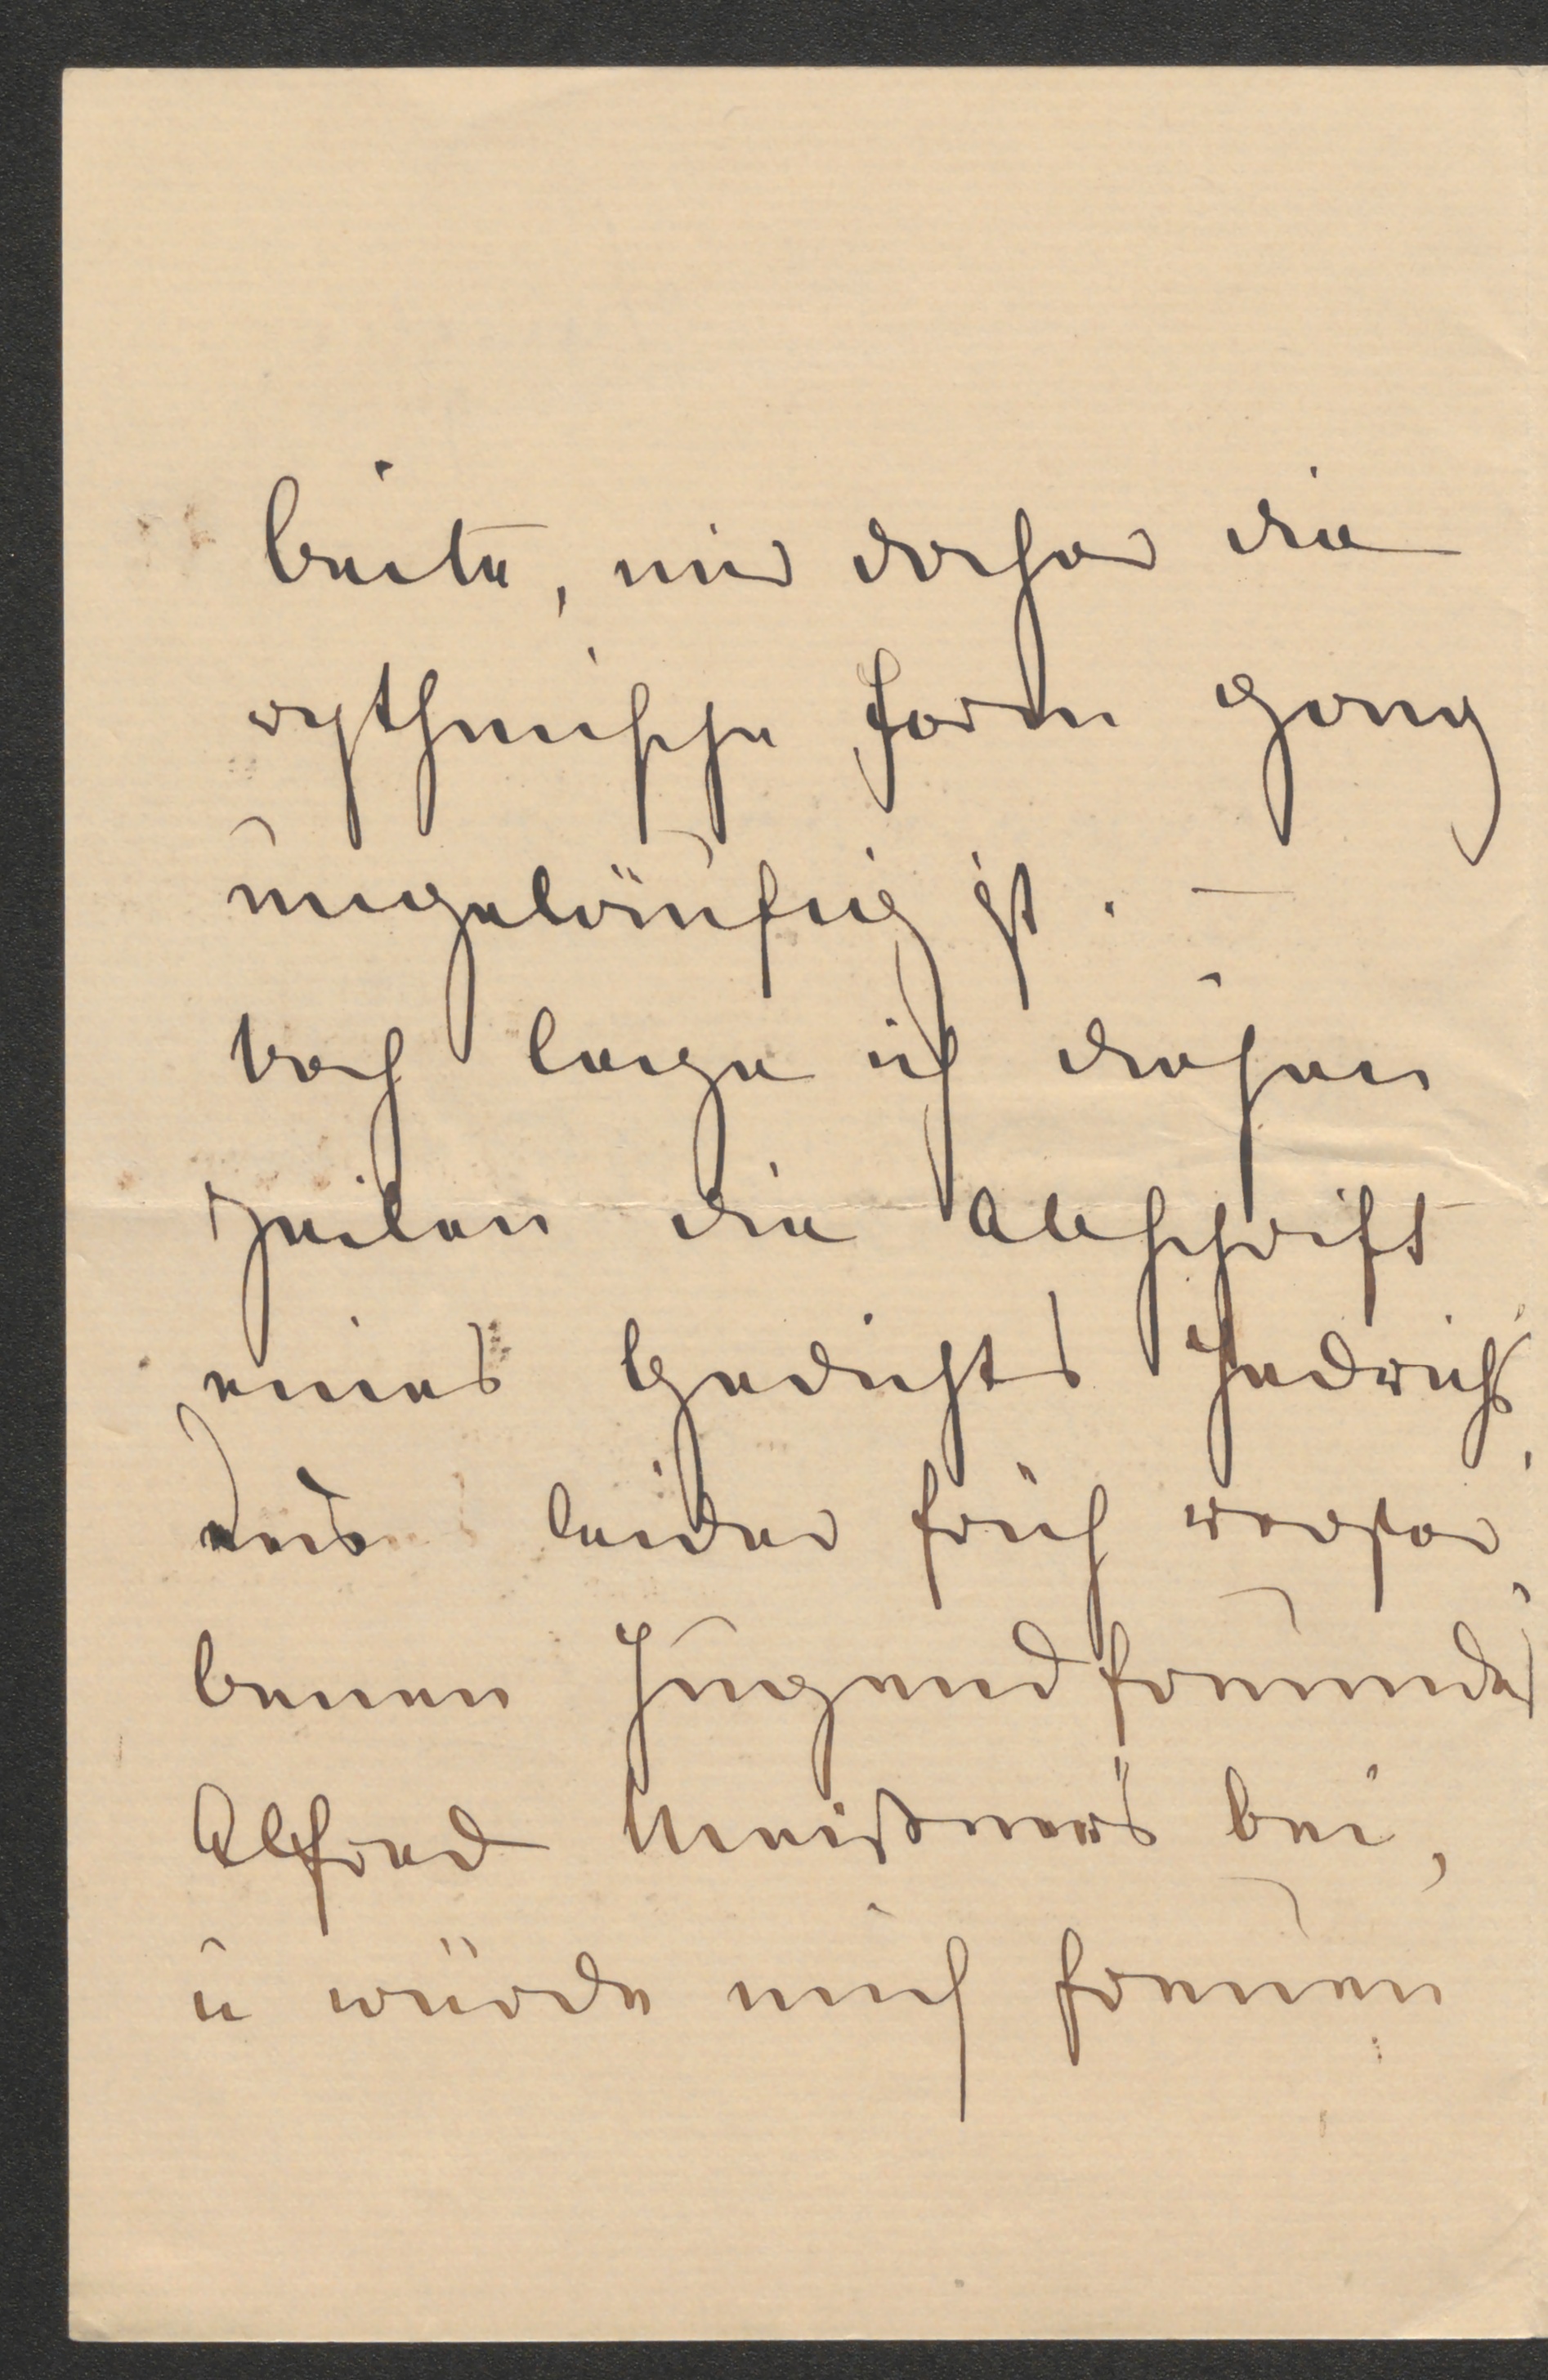 beite, mir daher die
rythmische Form ganz
ungeläufig ist. —
Doch lege ich diesen
Zeilen die Abschrift
eines Gedichts Hedrichs,
des leider früh verstor
benen Jugendfreundes
Alfred Meißner's bei,
u würde mich freuen